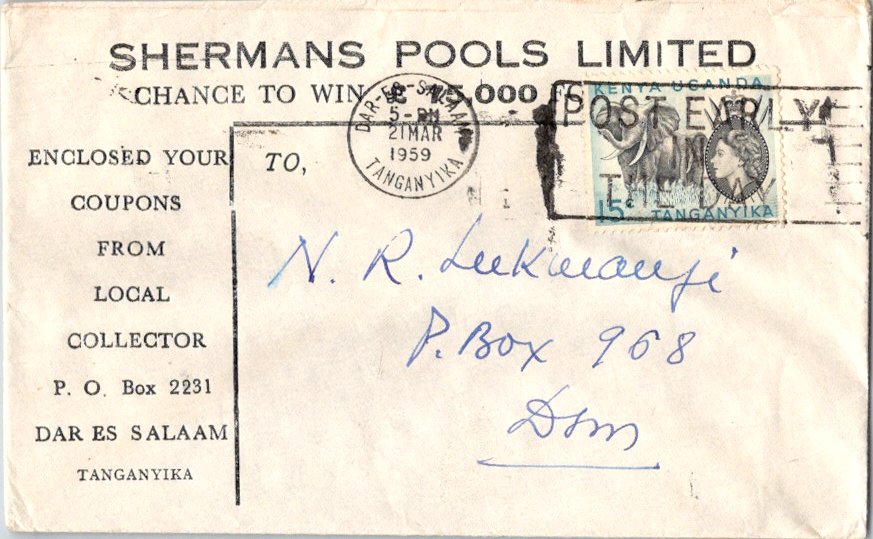 SHERMANS POOLS LIMITED
CHANCE TO WIN £ 75,000 FO
DAR-ES-SALAAM
5-PM
21 MAR
1959
TANGANYIKA
POST EARLY
IN
THE DAY
KENYA UGANDA
15c
TANGANYIKA
ENCLOSED YOUR
COUPONS
FROM
LOCAL
COLLECTOR
P. O. Box 2231
DAR ES SALAAM
TANGANYIKA
TO,
N. R. Lukmanji
P. Box 968
Dsm